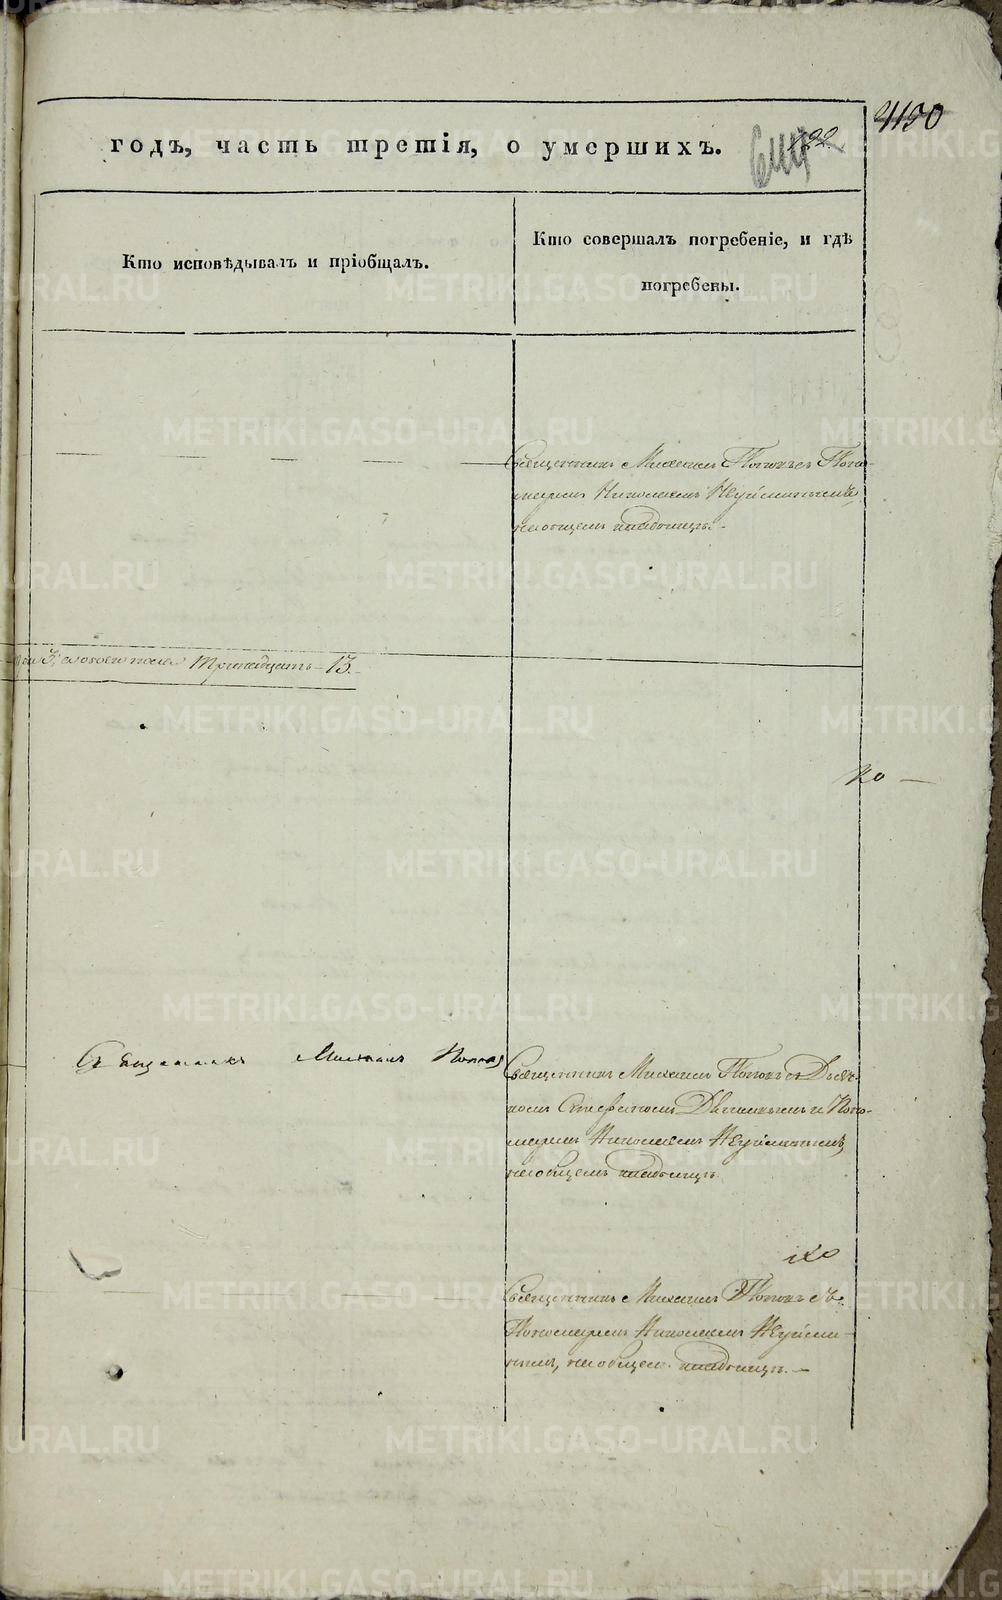 4150
годъ, часть третія, о умершихъ.
Кто исповѣдывалъ и пріобщалъ.
Кто совершалъ погребеніе, и гдѣ
погребены.
Священникъ Михаилъ Поповъ съ Поно-
маремъ Николаемъ Неуйминымъ,
на общемъ кладбищѣ.
пола Тринадцать - 13.
Священникъ Михаилъ Поповъ
Священникъ Михаилъ Поповъ съ Дьяч-
комъ Стефаномъ и Поно-
маремъ Николаемъ Неуйминымъ,
на общемъ кладбищѣ.
Священникъ Михаилъ Поповъ съ
Пономаремъ Николаемъ Неуйми-
нымъ, на общемъ кладбищѣ. —
METRIKI.GASO-URAL.RU